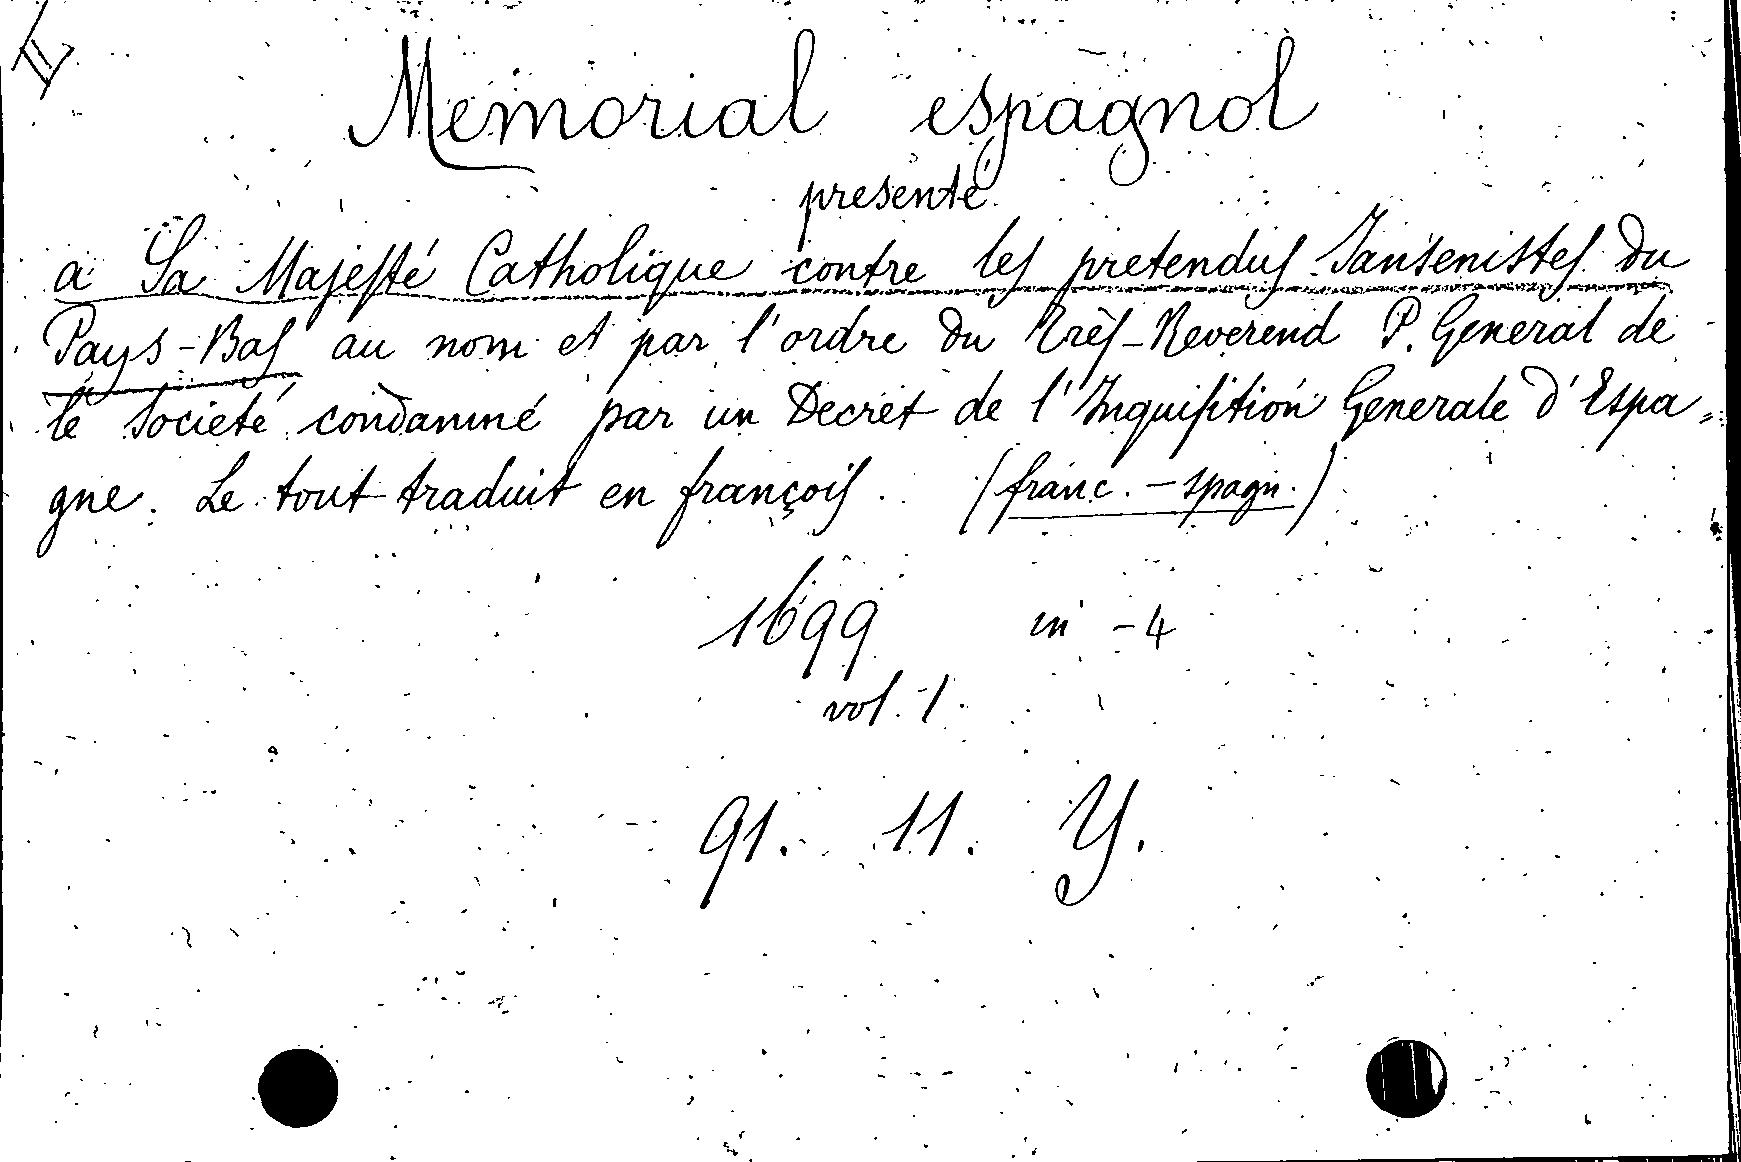 Memorial espagnol
presenté
a Sa Majesté Catholique contre les pretendus Jansenistes du
Pays-Bas au nom et par l'ordre du Très-Reverend P. General de
le Societé condamné par un Decret de l'Inquisition Generale d'Espa-
gne. Le tout traduit en françois. (franc.-spagn.)
1699 in -4
vol. 1.
91. 11. Y.